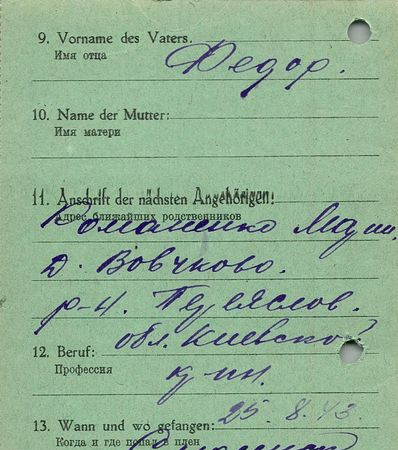 9. Vorname des Vaters.
Имя отца
Федор.
10. Name der Mutter:
Имя матери
11. Anschrift der nächsten Angehörigen:
Адрес ближайших родственников
Романенко
д. Вовчково.
р-н. Переяслов.
обл. Киевской
12. Beruf:
Профессия
кр-ин.
13. Wann und wo gefangen: 25. 8. 43.
Когда и где попал в плен